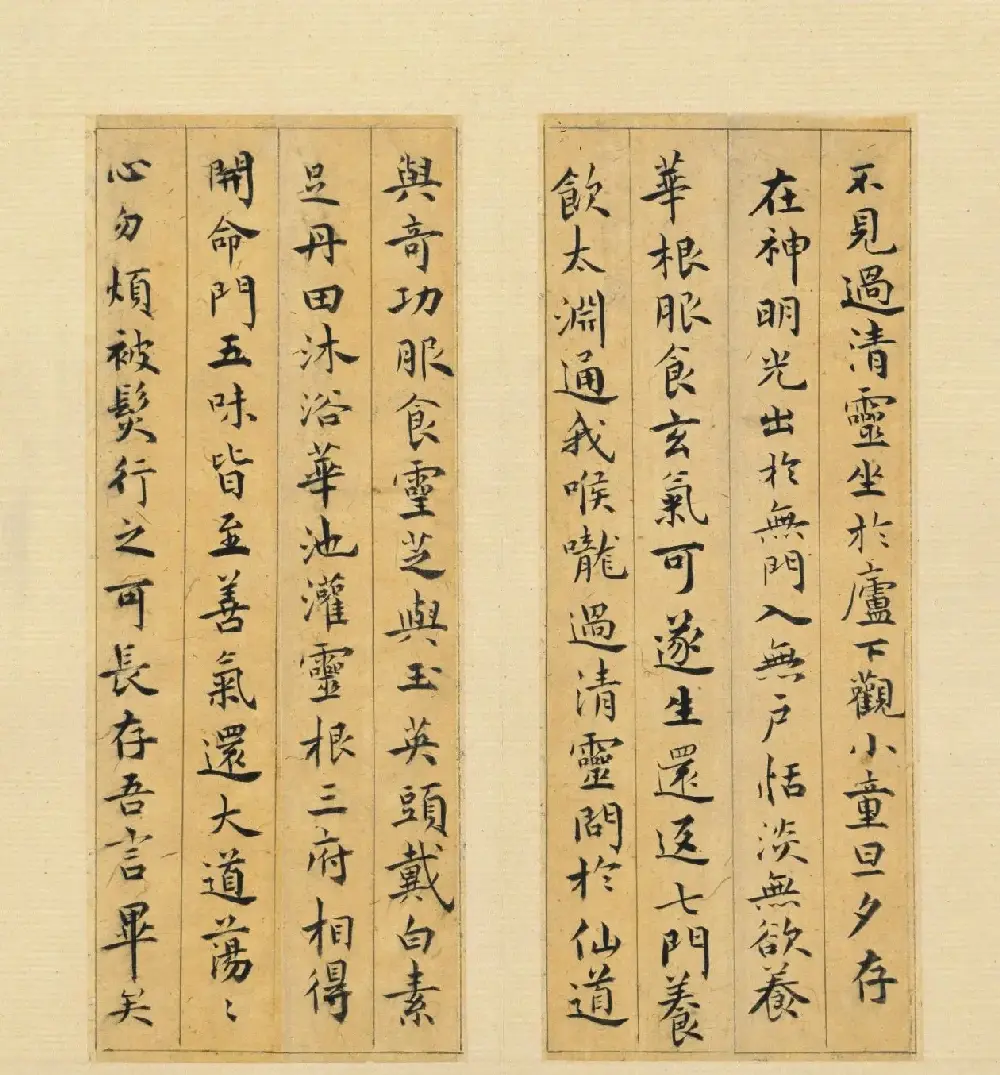 不見過清靈坐於廬下觀小童旦夕存
在神明光出於無門入無戶恬淡無欲養
華根服食玄氣可遂生還返七門養
飲太淵通我喉嚨過清靈問於仙道
與奇功服食靈芝與玉英頭戴白素
足丹田沐浴華池灌靈根三府相得
開命門五味皆至善氣還大道蕩〻
心勿煩被髮行之可長存吾言畢矣